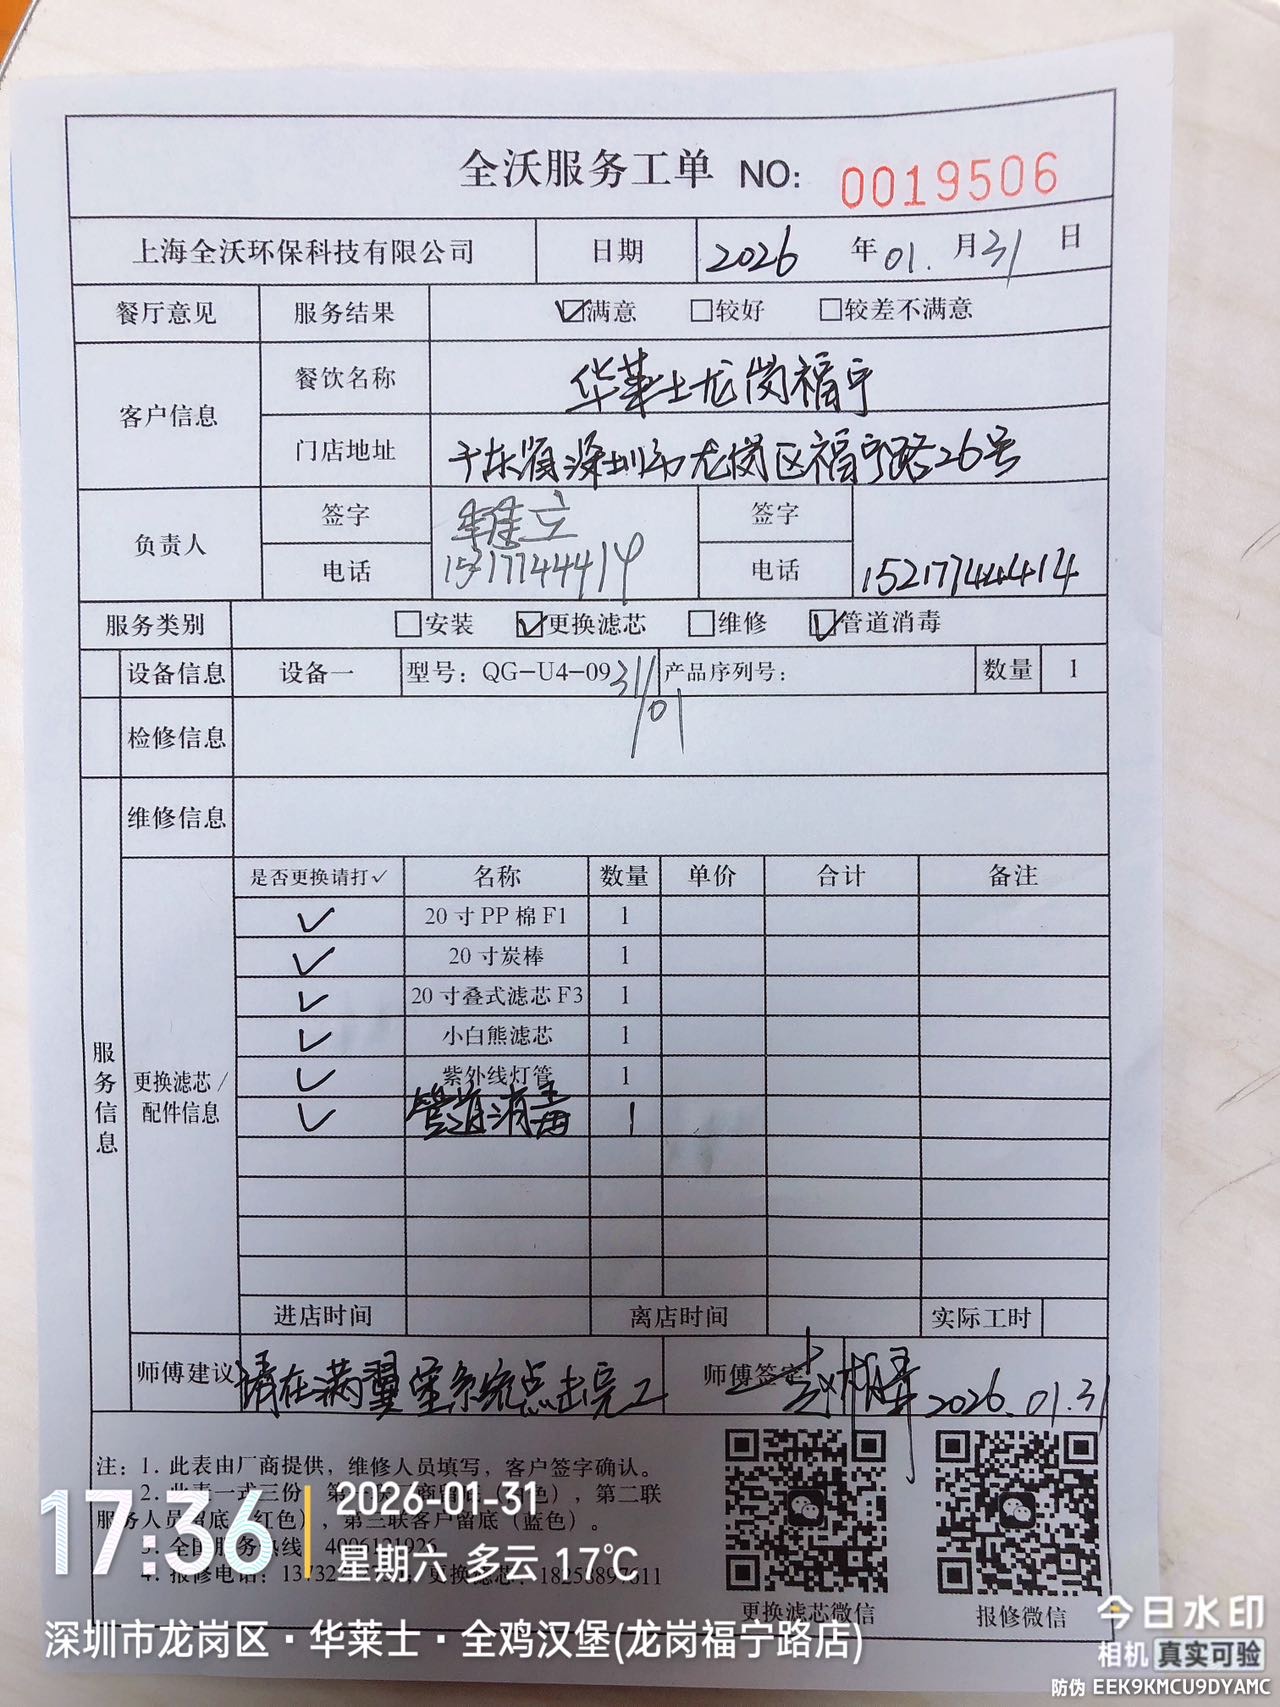 全沃服务工单 NO: 0019506
上海全沃环保科技有限公司 日期 2026 年 01. 月 31 日
餐厅意见 服务结果 ☑满意 □较好 □较差不满意
客户信息 餐饮名称 华莱士龙岗福宁
门店地址 广东省深圳市龙岗区福宁路26号
负责人 签字 签字
电话 15217744414 电话 15217744414
服务类别 □安装 ☑更换滤芯 □维修 ☑管道消毒
设备信息 设备一 型号: QG-U4-09 产品序列号: 数量 1
31/01
检修信息
维修信息
服务信息
更换滤芯/配件信息
是否更换请打✓ 名称 数量 单价 合计 备注
✓ 20寸PP棉F1 1
✓ 20寸炭棒 1
✓ 20寸叠式滤芯F3 1
✓ 小白熊滤芯 1
✓ 紫外线灯管 1
✓ 管道消毒 1
进店时间 离店时间 实际工时
师傅建议 请在满翼宝系统点击完工 师傅签字 2026.01.31
注: 1. 此表由厂商提供，维修人员填写，客户签字确认。
2. 此表一式三份 第 商留底 色），第二联
服务人员留底 红色），第三联客户留底（蓝色）。
3. 全国服务热线
4. 报修电话: 更换滤芯:
更换滤芯微信 报修微信
17:36 2026-01-31
星期六 多云 17℃
深圳市龙岗区·华莱士·全鸡汉堡(龙岗福宁路店)
今日水印
相机 真实可验
防伪 EEK9KMCU9DYAMC